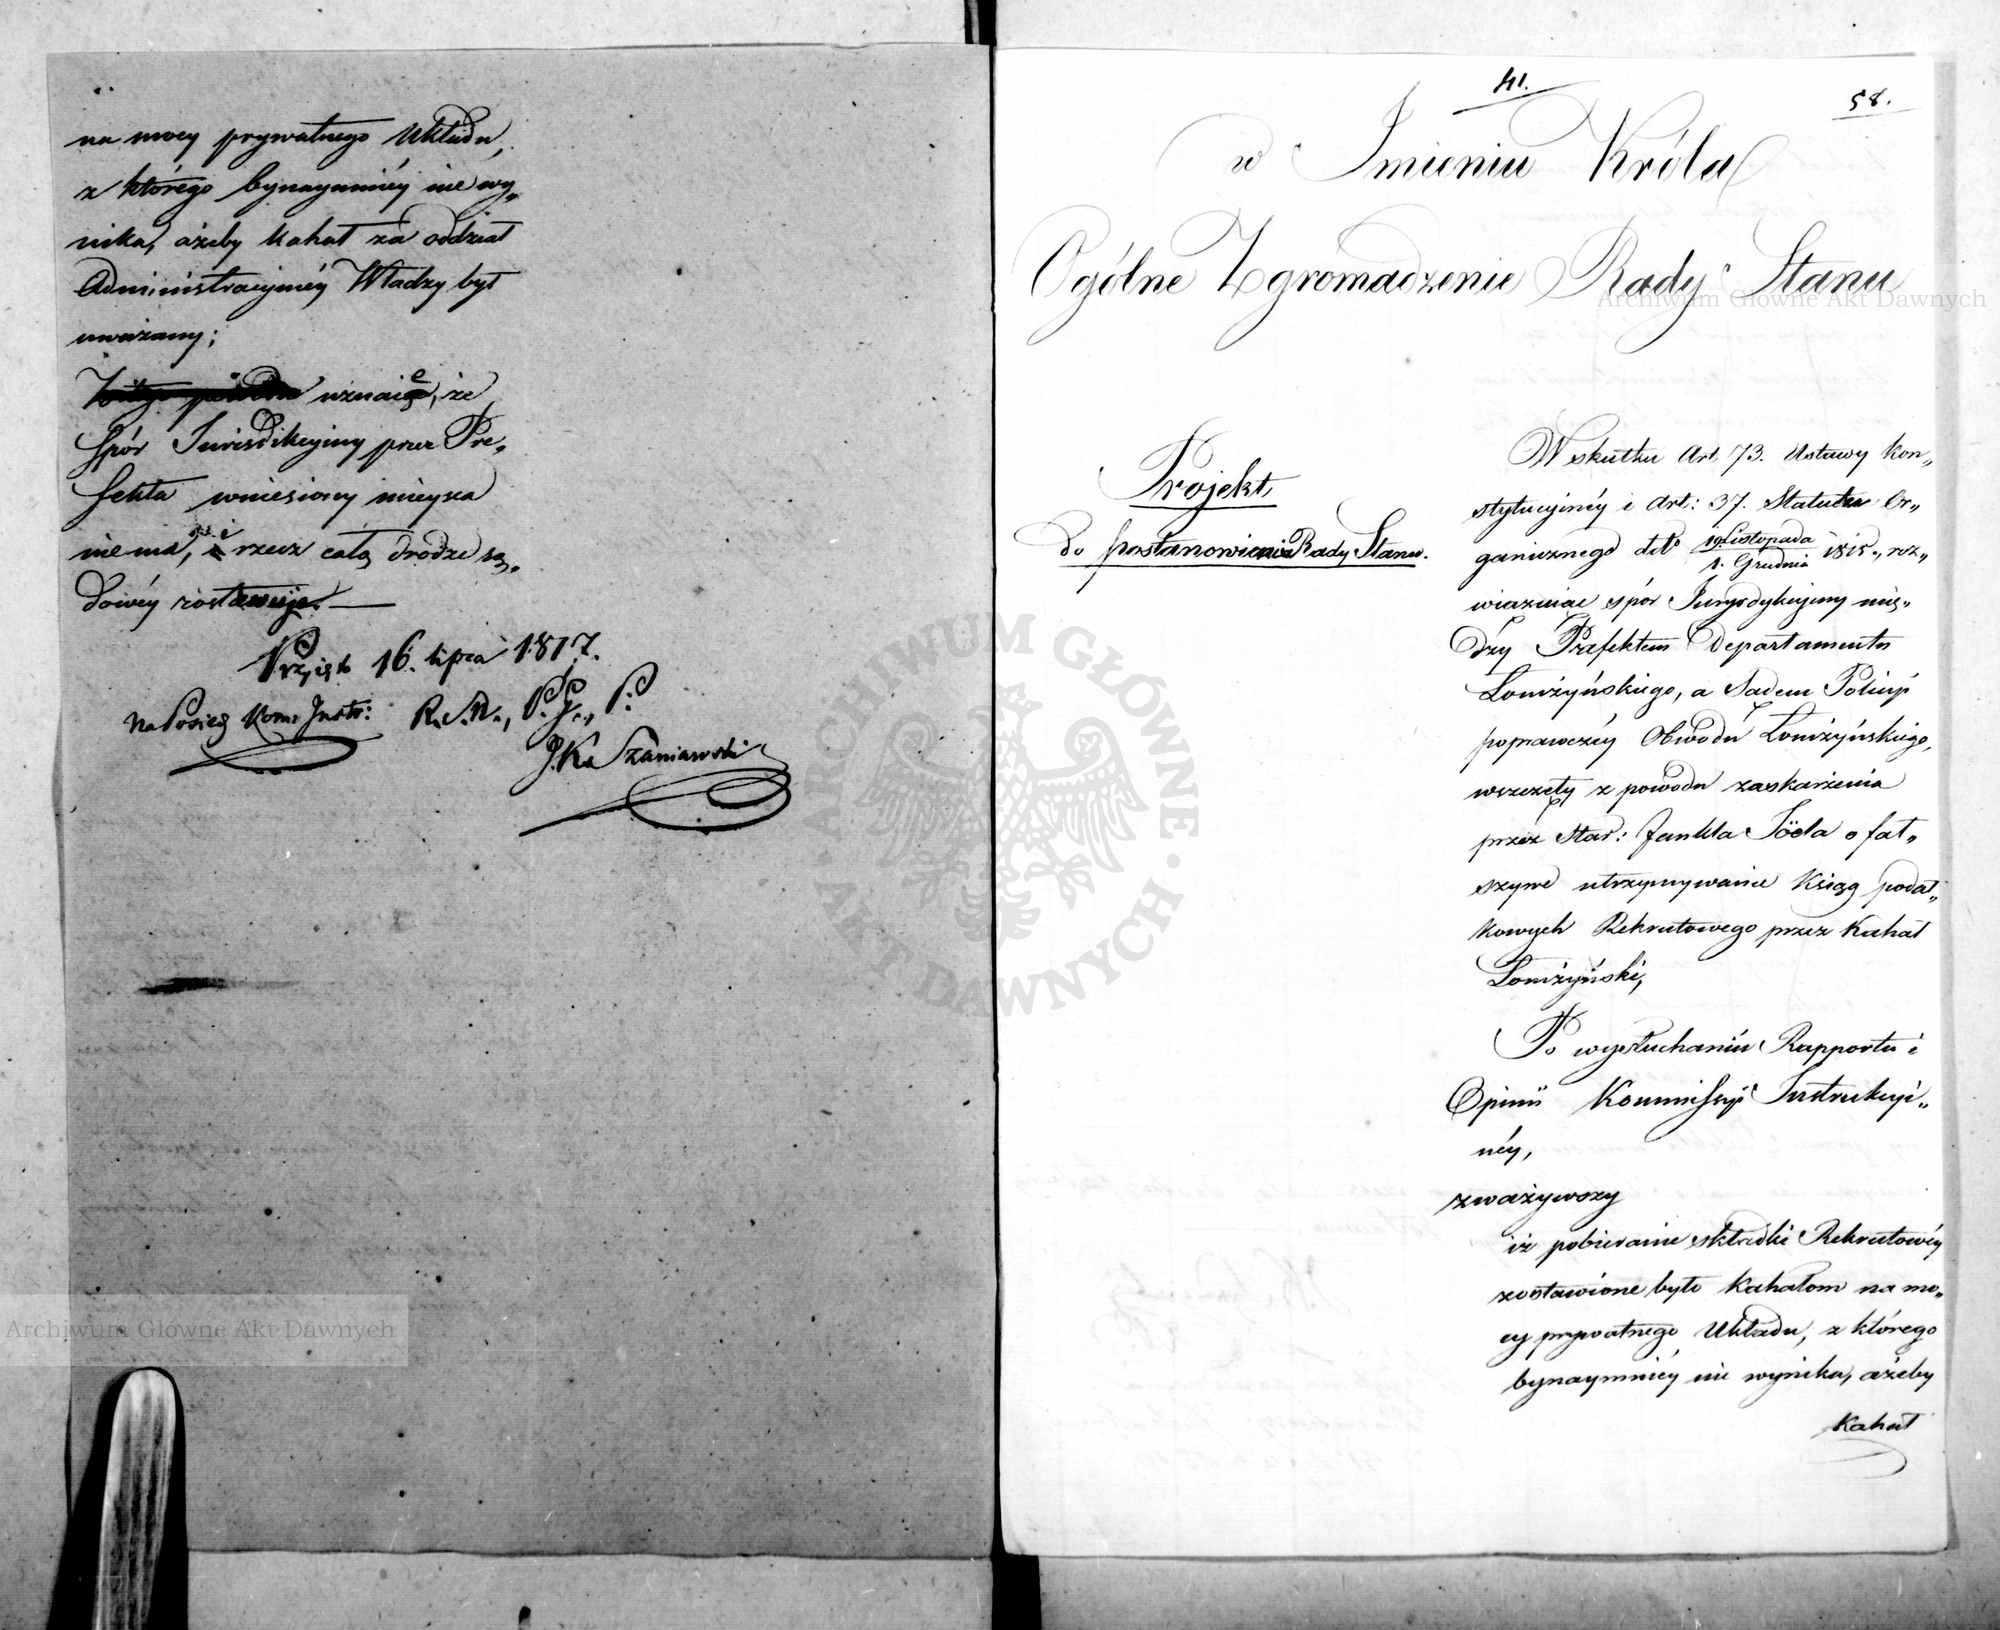 na mocy prywatnego Układu,
z którego bynaymniéy nie wy„
nika, ażeby Kahał za oddział
Administracyinéy Władzy był
uważany;
uznaie, że
Spór Jurisdikcyiny przez Pre„
fekta wniesiony mieysca
nie ma, i rzecz całą drodze są„
dowéy zostawuje. —
Przyięto 16. lipca 1817.
Na Posiedz Kom: Instr: R. S. N., P. P.
J. K. Szaniawski
41.
58.
w Imieniu Króla
Ogólne Zgromadzenie Rady Stanu
Projekt
do postanowienia Rady Stanu.
W skutku Art. 73. Ustawy Kon„
stytucyinéy i Art: 37. Statutu Or„
ganicznego dtto 19. Listopada
1. Grudnia 1815., roz„
wiązuiąc spór Jurysdykcyiny mię„
dzy Prefektem Departamentu
Łomżyńskiego, a Sądem Policyi
poprawczéy Obwodu Łomżyńskiego,
wszczęty z powodu zaskarżenia
przez Star: Jankla Joela o fał„
szywe utrzymywanie Ksiąg podat„
kowych Rekrutowego przez Kahał
Łomżyński,
Po wysłuchaniu Rapportu i
Opinii Kommissyi Instrukcyi„
néy,
zważywszy
iż pobieranie składki Rekrutowéy
zostawione było Kahałom na mo„
cy prywatnego Układu, z którego
bynaymniéy nie wynika, ażeby
Kahał
Archiwum Główne Akt Dawnych
Archiwum Główne Akt Dawnych
ARCHIWUM GŁÓWNE AKT DAWNYCH